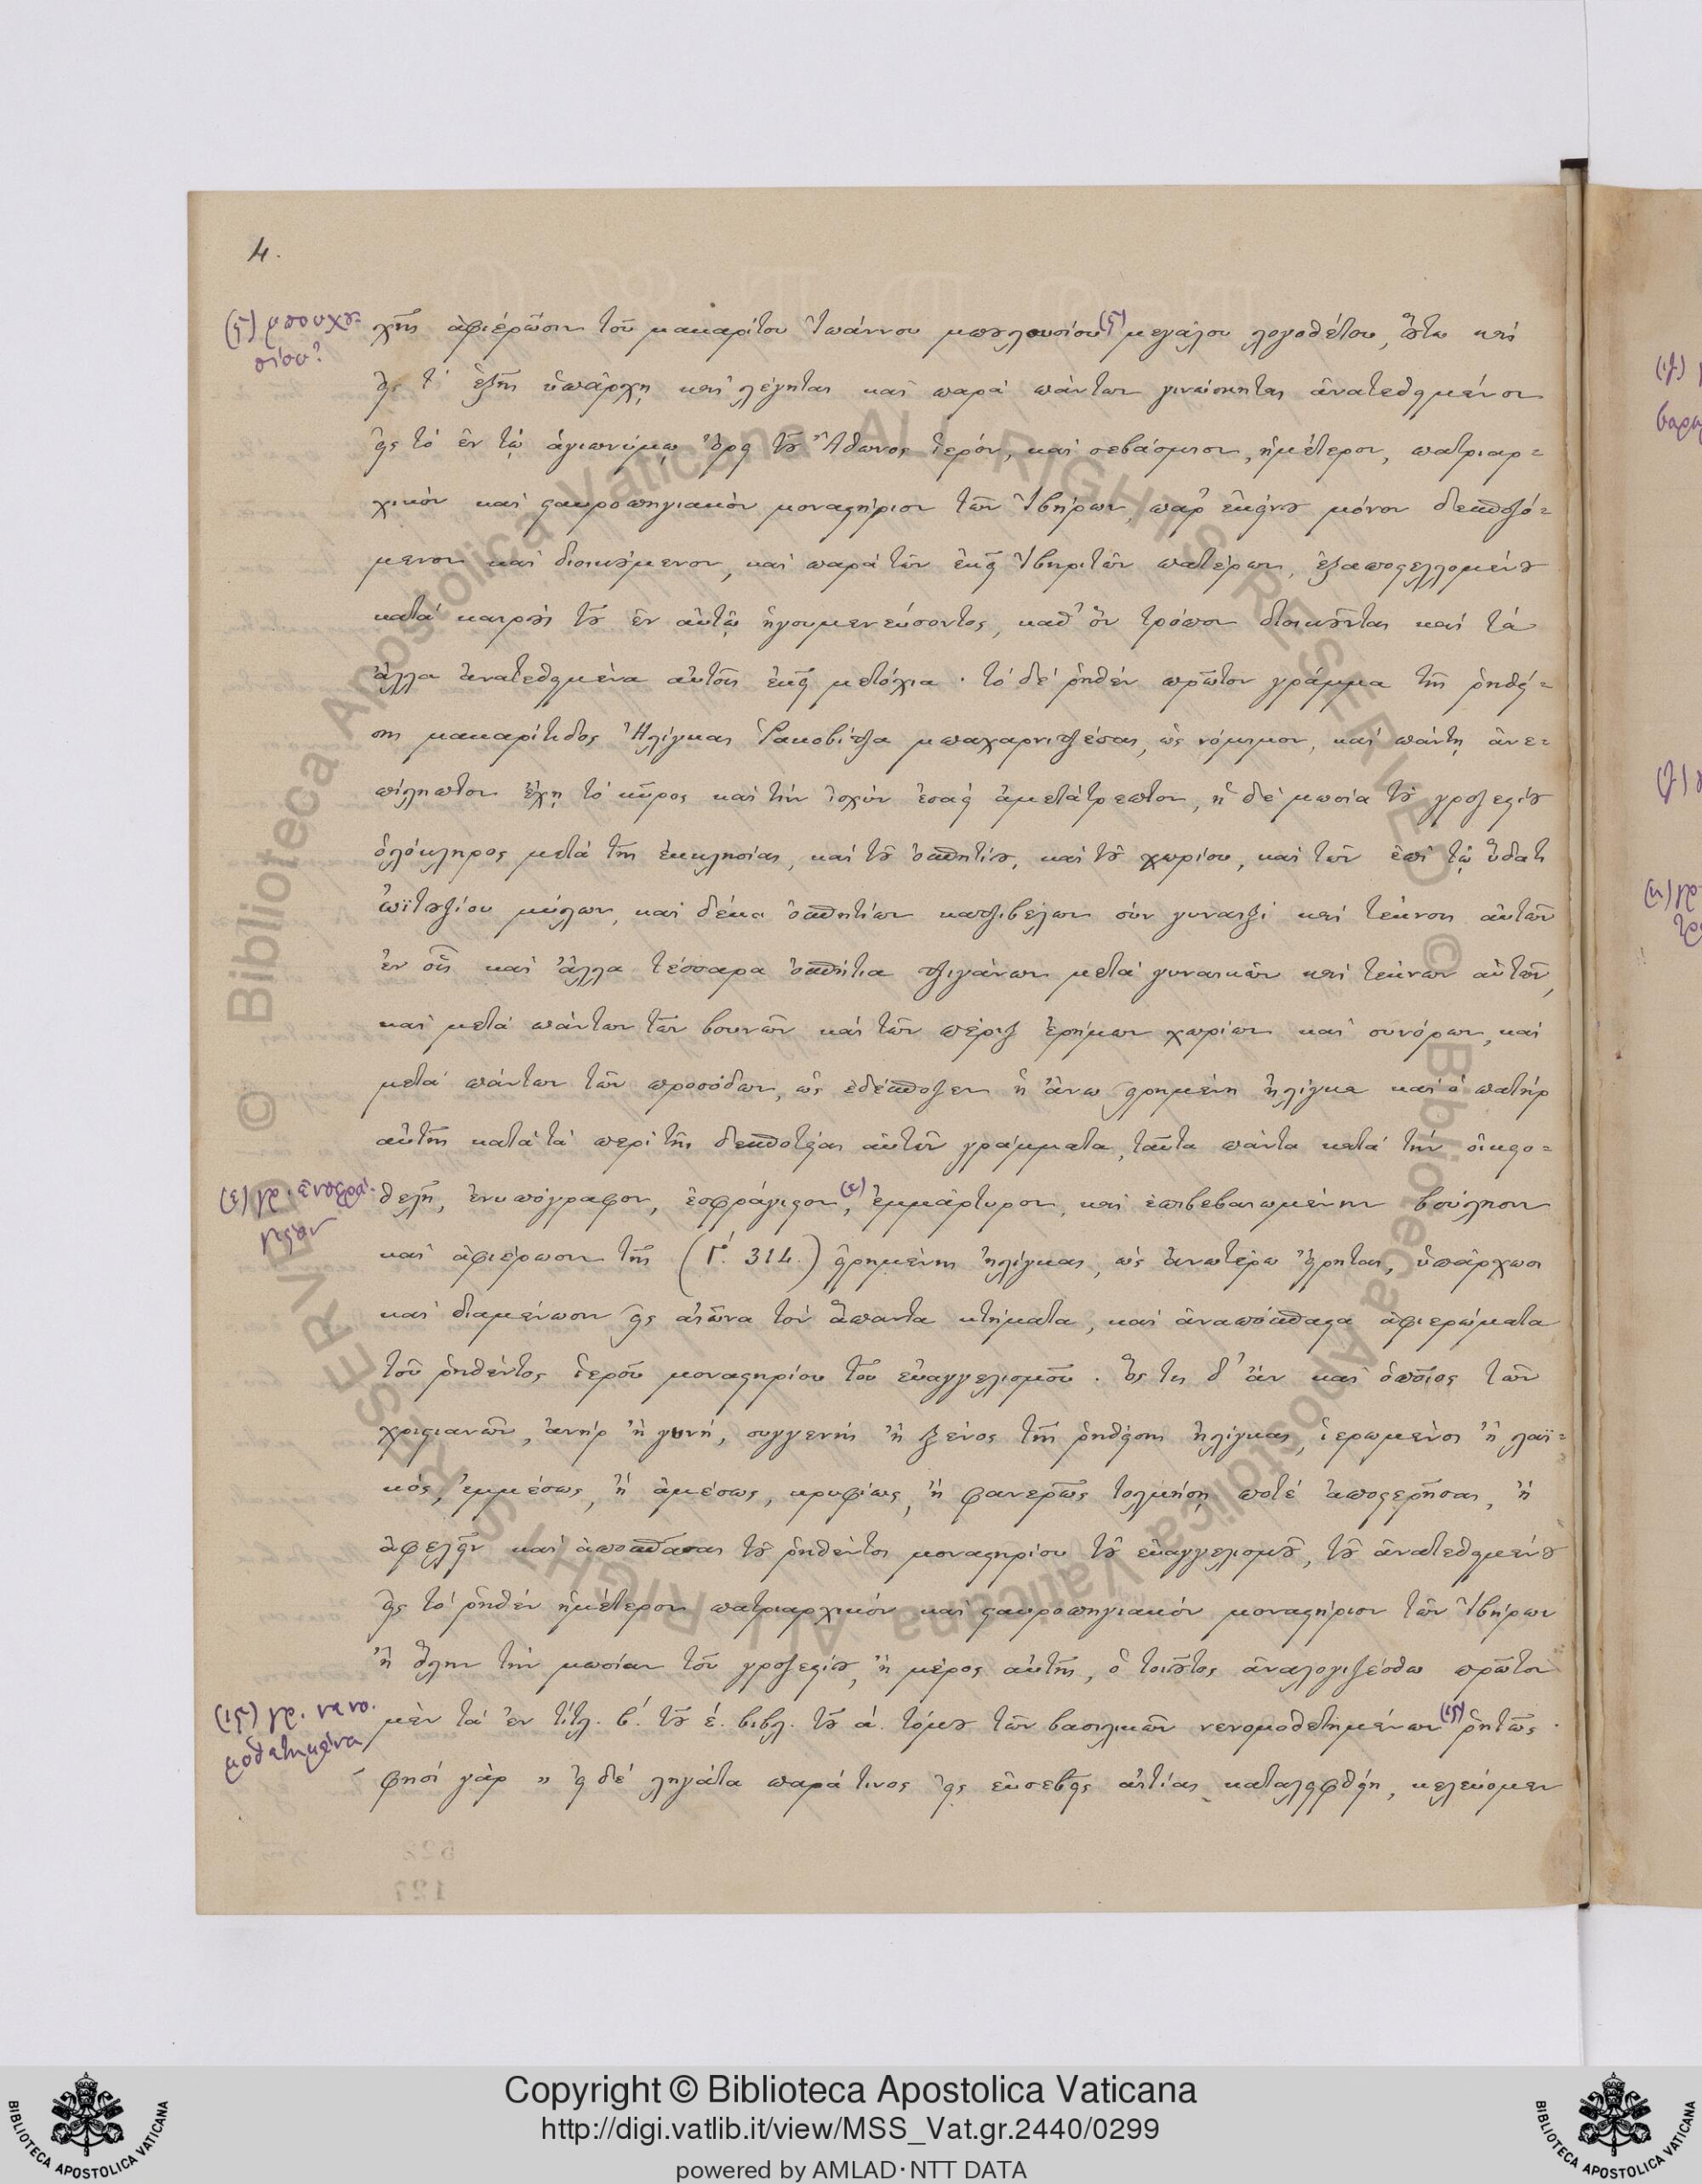 4.
(ϛ) μπουχου-
σίου?
χῆς ἀφιέρωσιν τοῦ μακαρίτου Ἰωάννου μπουλουσίου (ϛ) μεγάλου λογοθέτου, οὕτω καὶ
εἰς τὸ ἑξῆς ὑπάρχῃ καὶ λέγηται καὶ παρὰ πάντων γινώσκηται ἀνατεθειμένον
εἰς τὸ ἐν τῷ ἁγιωνύμῳ ὄρει τοῦ Ἄθωνος ἱερόν, καὶ σεβάσμιον, ἡμέτερον, πατριαρ=
χικὸν καὶ σταυροπηγιακὸν μοναστήριον τῶν Ἰβήρων, παρ' ἐκείνου μόνον δεσποζό=
μενον καὶ διοικούμενον, καὶ παρὰ τῶν ἐκεῖ Ἰβηριτῶν πατέρων, ἐξαποστελλομένου
κατὰ καιροὺς τοῦ ἐν αὐτῷ ἡγουμενεύσοντος, καθ' ὃν τρόπον διοικοῦνται καὶ τὰ
ἄλλα ἀνατεθειμένα αὐτοῖς ἐκεῖ μετόχια · τὸ δὲ ῥηθὲν πρῶτον γράμμα τῆς ῥηθεί=
σης μακαρίτιδος Ἠλίγκας Ῥακοβίτζα μπαχαρνιτζέσας, ὡς νόμιμον, καὶ πάντῃ ἀνε=
πίληπτον ἔχῃ τὸ κῦρος καὶ τὴν ἰσχὺν ἐσαεὶ ἀμετάτρεπτον, ἡ δὲ μωσία τοῦ γροζεστίου
ὁλόκληρος μετὰ τῆς ἐκκλησίας, καὶ τοῦ ὁσπητίου, καὶ τοῦ χωρίου, καὶ τῶν ἐπὶ τῷ ὕδατι
ὠϊτουζίου μύλων, καὶ δέκα ὁσπητίων κατζιβέλων σὺν γυναιξὶ καὶ τέκνοις αὐτῶν
ἐν οἷς καὶ ἄλλα τέσσαρα ὁσπήτια τζιγάνων μετὰ γυναικῶν καὶ τέκνων αὐτῶν,
καὶ μετὰ πάντων τῶν βουνῶν καὶ τῶν πέριξ ἐρήμων χωρίων καὶ συνόρων, καὶ
μετὰ πάντων τῶν προσόδων, ὡς ἐδέσποζεν ἡ ἄνω εἰρημένη ἠλίγκα καὶ ὁ πατὴρ
αὐτῆς κατὰ τὰ περὶ τῆς δεσποτείας αὐτῶν γράμματα, ταῦτα πάντα κατὰ τὴν οἰκειο=
(ε) γρ. ἐνσφρά-
γιστον
θελῆ, ἐνυπόγραφον, ἐσφράγιστον (ε), ἐμμάρτυρον, καὶ ἐπιβεβαιωμένην βούλησιν
καὶ ἀφιέρωσιν τῆς (Γ΄. 314.) εἰρημένης ἠλίγκας, ὡς ἀνωτέρω εἴρηται, ὑπάρχωσι
καὶ διαμένωσιν εἰς αἰῶνα τὸν ἅπαντα κτήματα, καὶ ἀναπόσπαστα ἀφιερώματα
τοῦ ῥηθέντος ἱεροῦ μοναστηρίου τοῦ εὐαγγελισμοῦ . Ὅς τις δ' ἂν καὶ ὁποῖος τῶν
χριστιανῶν, ἀνὴρ ἢ γυνή, συγγενὴς ἢ ξένος τῆς ῥηθείσης ἠλίγκας, ἱερωμένος ἢ λαϊ=
κός, ἐμμέσως, ἢ ἀμέσως, κρυφίως, ἢ φανερῶς τολμήσῃ ποτὲ ἀποστερῆσαι, ἢ
ἀφελεῖν καὶ ἀποσπάσαι τοῦ ῥηθέντος μοναστηρίου τοῦ εὐαγγελισμοῦ, τοῦ ἀνατεθειμένου
εἰς τὸ ῥηθὲν ἡμέτερον πατριαρχικὸν καὶ σταυροπηγιακὸν μοναστήριον τῶν Ἰβήρων
ἢ ὅλην τὴν μωσίαν τοῦ γροζεστίου, ἢ μέρος αὐτῆς, ὁ τοιοῦτος ἀναλογιζέσθω πρῶτον
(ιϛ) γρ. νενο-
μοθετημένα
μὲν τὰ ἐν τίτλ. β΄. τοῦ έ. βιβλ. τοῦ ά. τόμου τῶν βασιλικῶν νενομοθετημένων (ιϛ) ῥητῶς ·
φησὶ γὰρ „ εἰ δὲ ληγάτα παρά τινος εἰς εὐσεβεῖς αἰτίας καταλειφθείη, κελεύομεν
Copyright © Biblioteca Apostolica Vaticana
http://digi.vatlib.it/view/MSS_Vat.gr.2440/0299
powered by AMLAD·NTT DATA